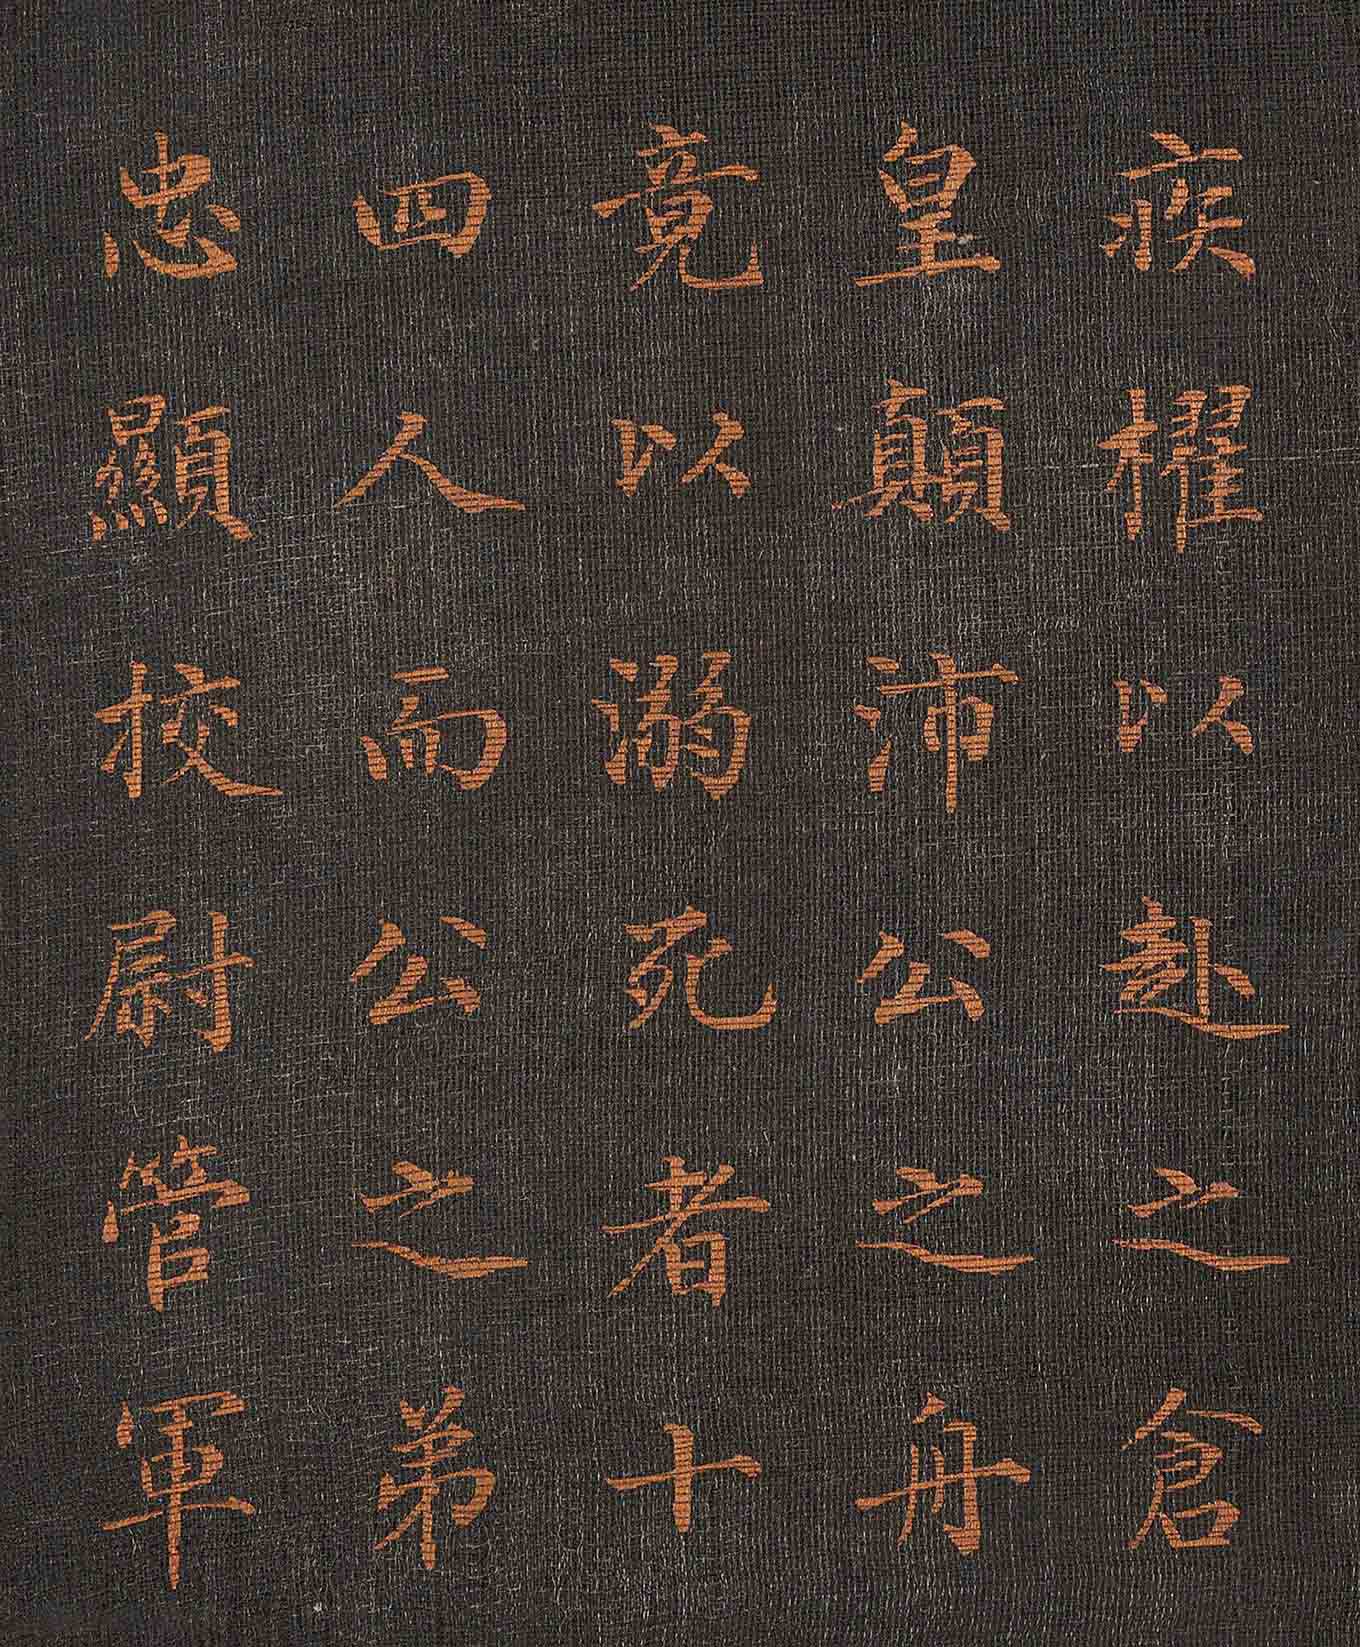 疾櫂以赴之倉
皇顛沛公之舟
竟以溺死者十
四人而公之弟
忠顯挍尉管軍